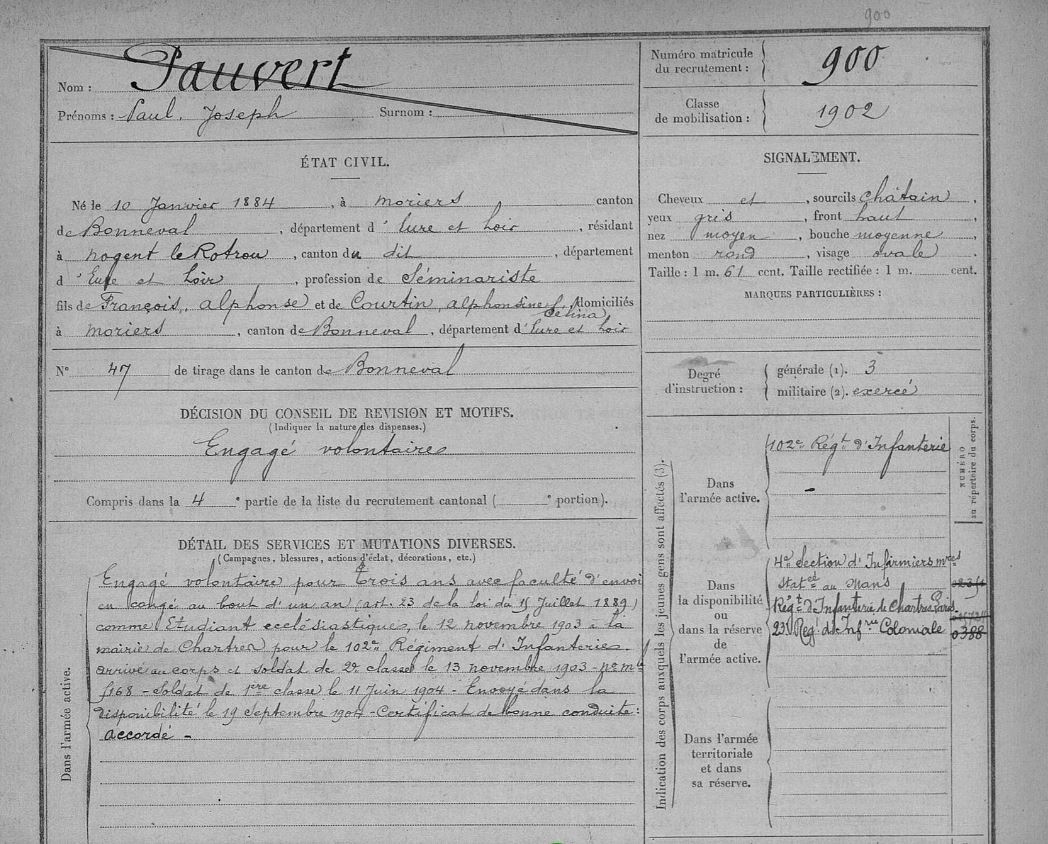 900
Nom : Pauvert
Prénoms : Paul, Joseph Surnom :
Numéro matricule du recrutement : 900
Classe de mobilisation : 1902
ÉTAT CIVIL.
Né le 10 Janvier 1884, à Moriers canton
de Bonneval, département d'Eure et Loir, résidant
à Nogent le Rotrou, canton du dit, département
d'Eure et Loir, profession de Séminariste
fils de François, Alphonse et de Courtin, Alphonsine, Célina, domiciliés
à Moriers, canton de Bonneval, département d'Eure et Loir
N° 47 de tirage dans le canton de Bonneval
DÉCISION DU CONSEIL DE REVISION ET MOTIFS.
(Indiquer la nature des dispenses.)
Engagé volontaire
Compris dans la 4e partie de la liste du recrutement cantonal ( e portion).
DÉTAIL DES SERVICES ET MUTATIONS DIVERSES.
(Campagnes, blessures, actions d'éclat, décorations, etc.)
Dans l'armée active.
Engagé volontaire pour trois ans avec faculté d'envoi
en congé au bout d'un an (art. 23 de la loi du 15 Juillet 1889)
comme Etudiant ecclésiastique, le 12 novembre 1903 à la
mairie de Chartres pour le 102e Régiment d'Infanterie.
Arrivé au corps et soldat de 2e classe le 13 novembre 1903 - no mle
6168 - Soldat de 1ere classe le 11 Juin 1904 - Envoyé dans la
disponibilité le 19 Septembre 1904 - Certificat de bonne conduite :
accordé -
SIGNALEMENT.
Cheveux et, sourcils châtain,
yeux gris, front haut
nez moyen, bouche moyenne
menton rond, visage ovale
Taille : 1 m. 61 cent. Taille rectifiée : 1 m. cent.
MARQUES PARTICULIÈRES :
Degré d'instruction :
générale (1). 3
militaire (2). exercé
Indication des corps auxquels les jeunes gens sont affectés (3).
NUMÉRO
au répertoire du corps.
Dans
l'armée active.
102e Régt d'Infanterie
Dans
la disponibilité
ou
dans la réserve
de
l'armée active.
4e Section d'Infirmiers mres
Stated au Mans
Régt d'Infanterie de Chartres Paris
23 Régt d'Infrie Coloniale 0388
Dans l'armée
territoriale
et dans
sa réserve.